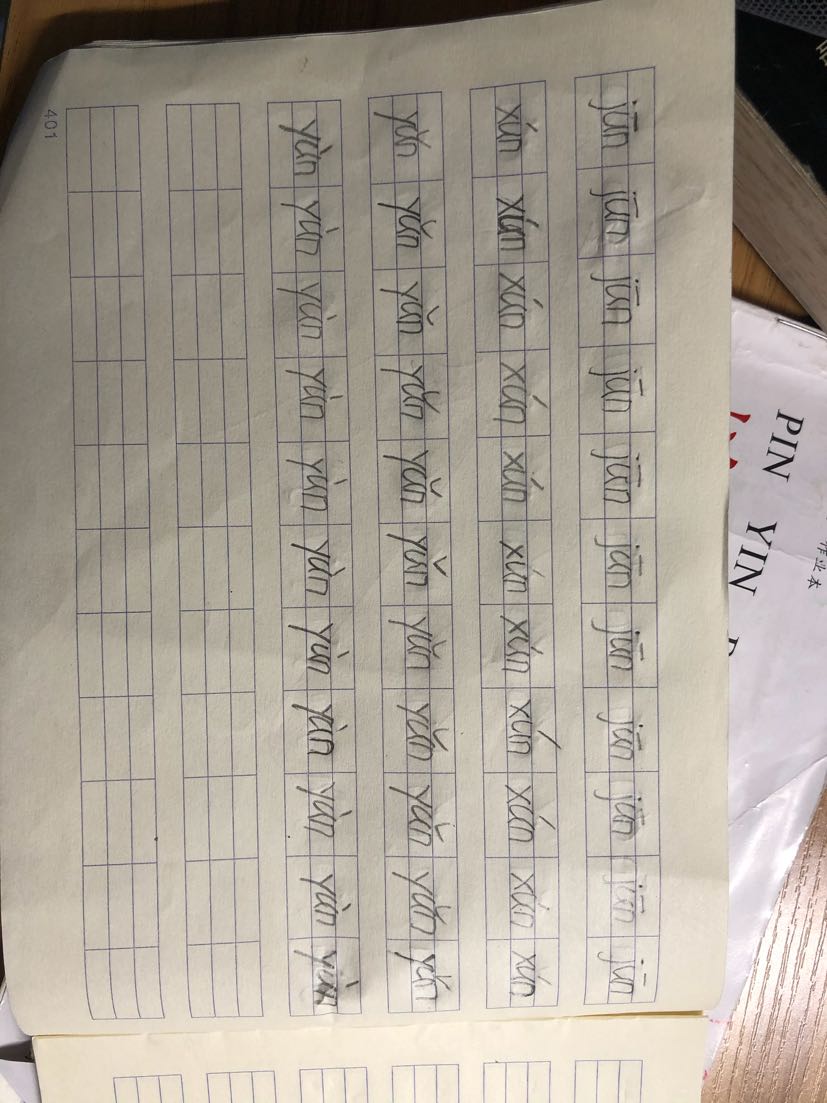 jūn jūn jūn jūn jūn jūn jūn jūn jūn jūn jūn
xún xún xún xún xún xún xún xún xún xún xún
yǔn yǔn yǔn yǔn yǔn yǔn yǔn yǔn yǔn yǔn yǔn
yùn yùn yùn yùn yùn yùn yùn yùn yùn yùn yùn
401
作业本
PIN YIN